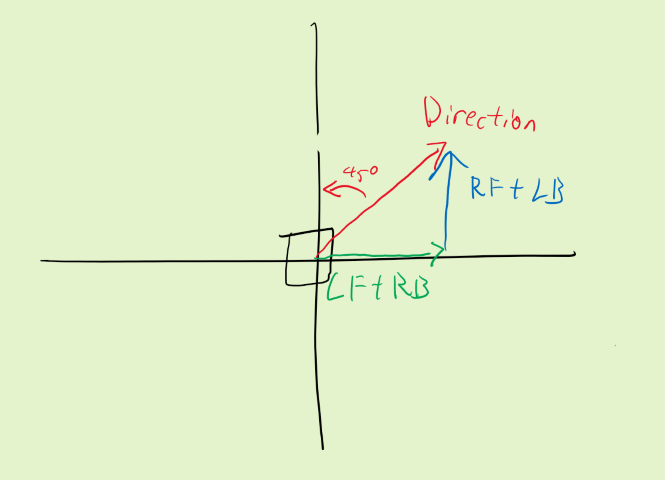 Direction
45°
RF+LB
LF+RB